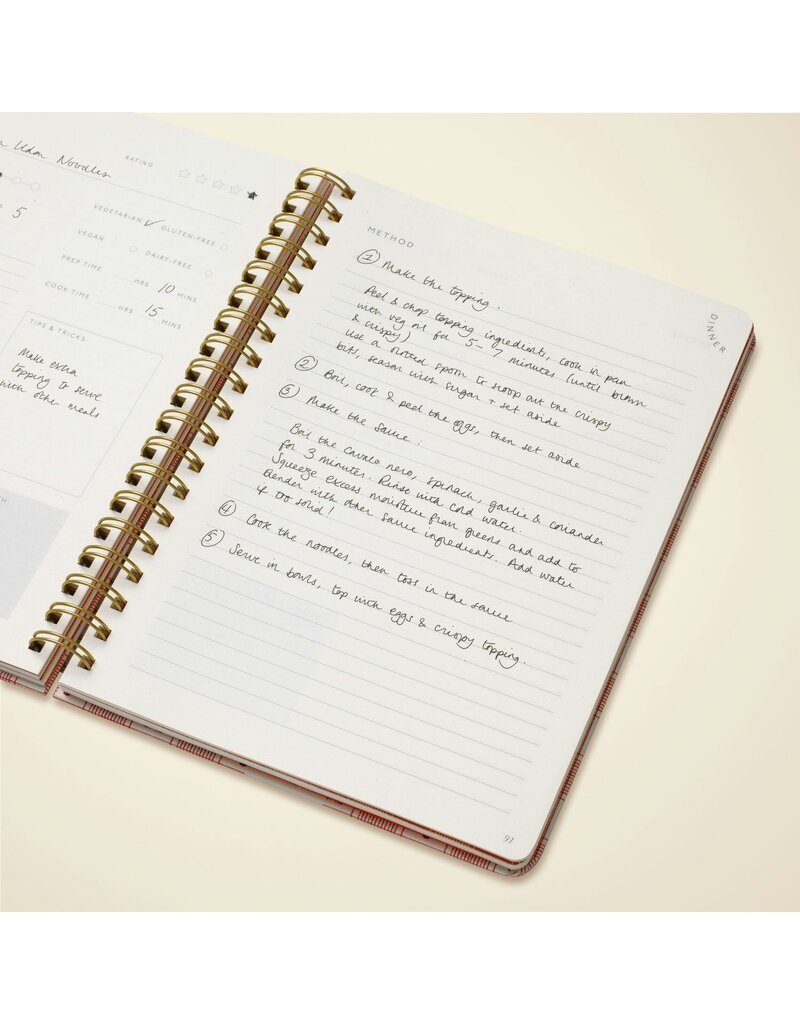 Udon Noodles
RATING
5
VEGETARIAN ✓ GLUTEN-FREE
VEGAN DAIRY-FREE
PREP TIME HRS 10 MINS
COOK TIME HRS 15 MINS
TIPS & TRICKS
Make extra
topping to serve
with other meals
METHOD
DINNER
① Make the topping.
Peel & chop topping ingredients, cook in pan
with veg oil for 5-7 minutes (until brown
& crispy)
Use a slotted spoon to scoop out the crispy
bits, season with sugar + set aside
② Boil, cool & peel the eggs, then set aside
③ Make the sauce:
Boil the Cavalo nero, spinach, garlic & coriander
for 3 minutes. Rinse with cold water.
Squeeze excess moisture from greens and add to
Blender with other sauce ingredients. Add water
if too solid!
④ Cook the noodles, then toss in the sauce
⑤ Serve in bowls, top with eggs & crispy topping.
91